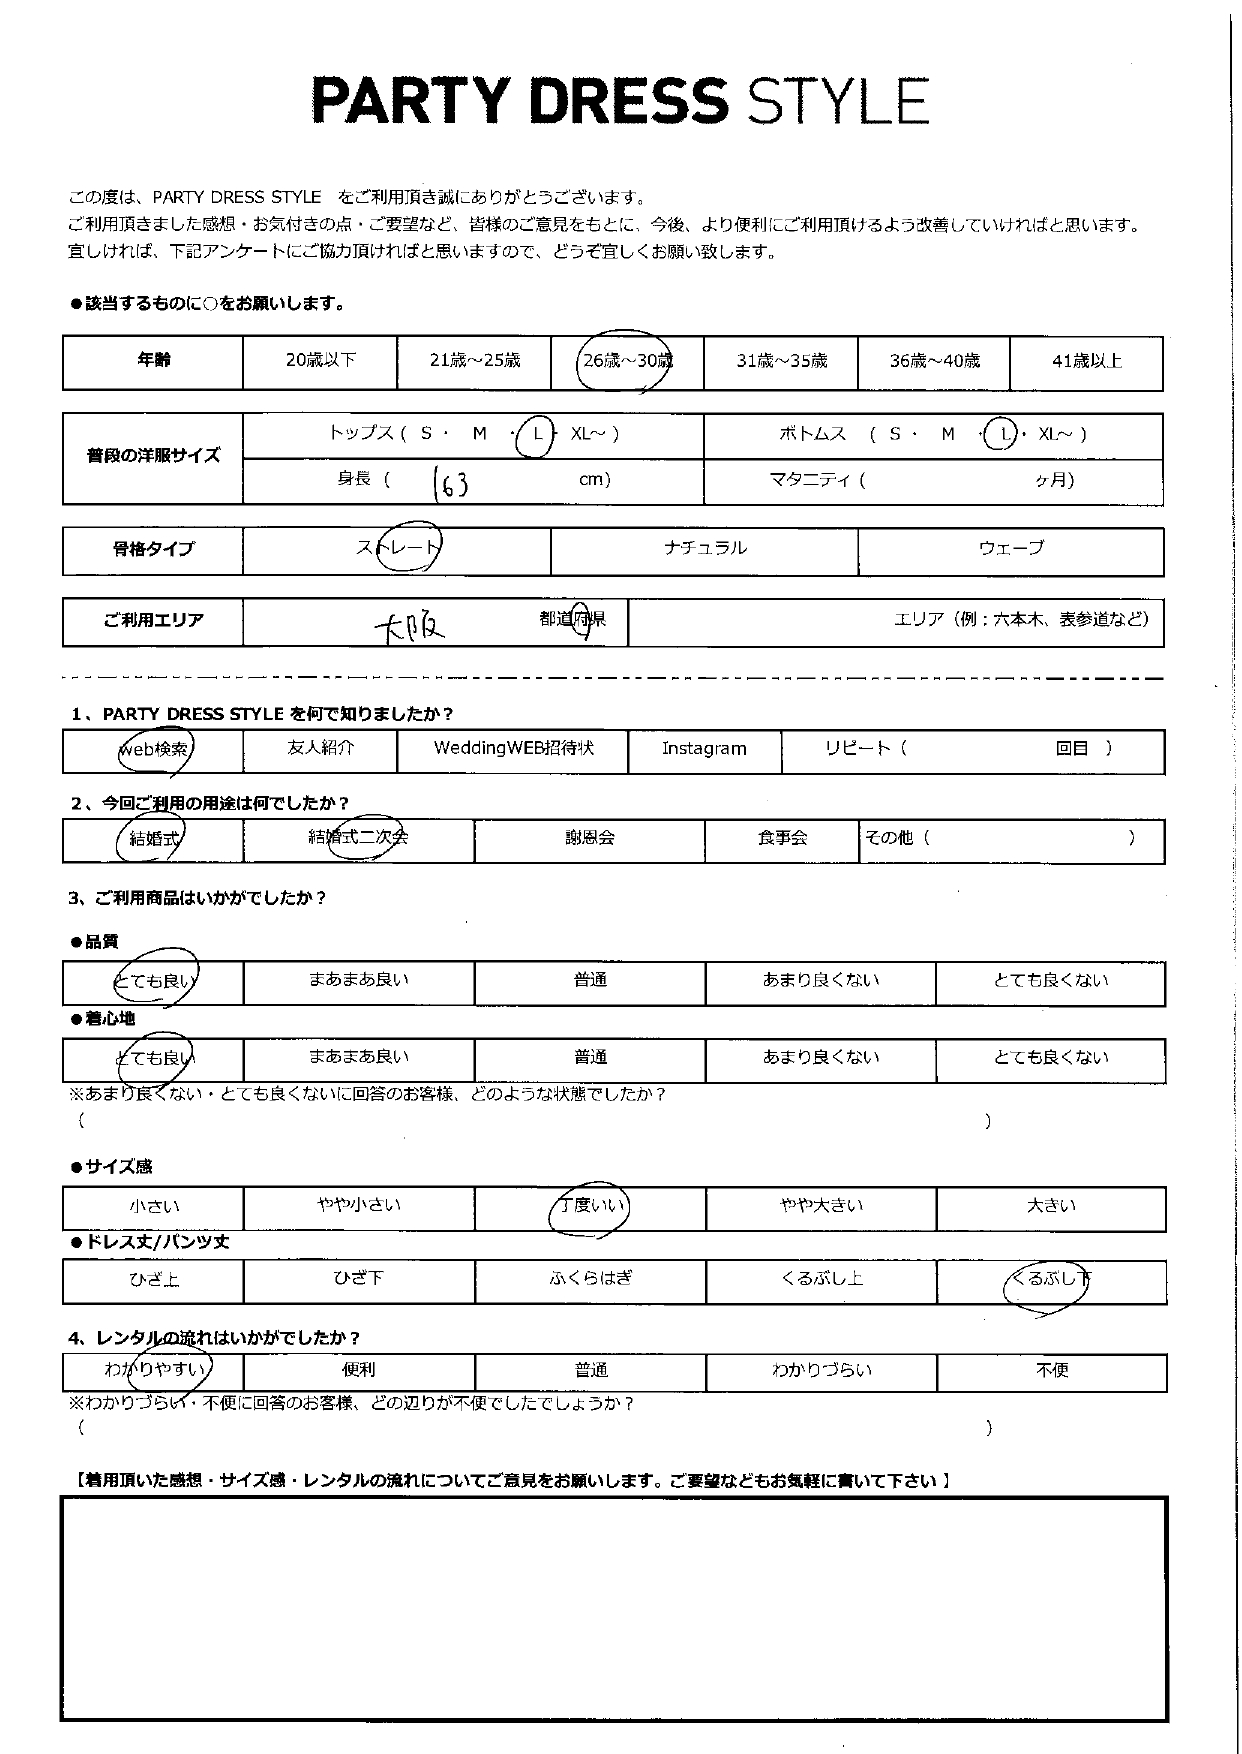 PARTY DRESS STYLE
この度は、PARTY DRESS STYLE をご利用頂き誠にありがとうございます。
ご利用頂きました感想・お気付きの点・ご要望など、皆様のご意見をもとに、今後、より便利にご利用頂けるよう改善していければと思います。
宜しければ、下記アンケートにご協力頂ければと思いますので、どうぞ宜しくお願い致します。
●該当するものに○をお願いします。
年齢 20歳以下 21歳～25歳 26歳～30歳 31歳～35歳 36歳～40歳 41歳以上
普段の洋服サイズ
トップス ( S ・ M ・ L ・ XL～ ) ボトムス ( S ・ M ・ L ・ XL～ )
身長 ( 163 cm) マタニティ ( ヶ月)
骨格タイプ ストレート ナチュラル ウェーブ
ご利用エリア 大阪 都道府県 エリア（例：六本木、表参道など）
1、PARTY DRESS STYLE を何で知りましたか？
web検索 友人紹介 WeddingWEB招待状 Instagram リピート（ 回目 ）
2、今回ご利用の用途は何でしたか？
結婚式 結婚式二次会 謝恩会 食事会 その他（ ）
3、ご利用商品はいかがでしたか？
●品質
とても良い まあまあ良い 普通 あまり良くない とても良くない
●着心地
とても良い まあまあ良い 普通 あまり良くない とても良くない
※あまり良くない・とても良くないに回答のお客様、どのような状態でしたか？
（ ）
●サイズ感
小さい やや小さい 丁度いい やや大きい 大きい
●ドレス丈/パンツ丈
ひざ上 ひざ下 ふくらはぎ くるぶし上 くるぶし下
4、レンタルの流れはいかがでしたか？
わかりやすい 便利 普通 わかりづらい 不便
※わかりづらい・不便に回答のお客様、どの辺りが不便でしたでしょうか？
（ ）
【着用頂いた感想・サイズ感・レンタルの流れについてご意見をお願いします。ご要望などもお気軽に書いて下さい】